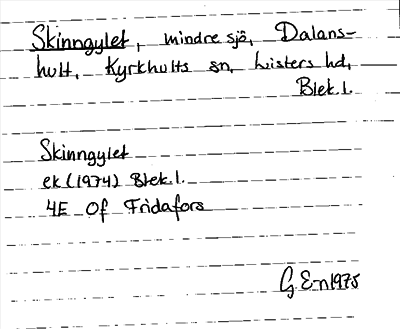 Skinngylet, mindre sjö, Dalans-
hult, Kyrkhults sn, Listers hd,
Blek.l.
Skinngylet
ek (1974) Blek.l.
4E 0f Fridafors
G.E-n 1975